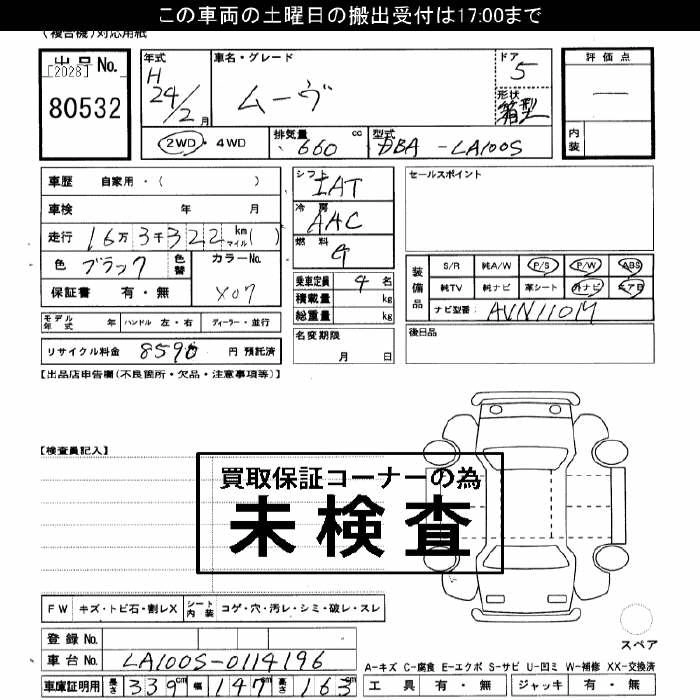 この車両の土曜日の搬出受付は17:00まで
(複合機)対応用紙
出品No.
[2028]
80532
年式 H 24/2月
車名・グレード ムーヴ
ドア 5
形状 箱型
評価点 —
内装
2WD・4WD
排気量 660 cc
型式 DBA-LA100S
車歴 自家用・( )
車検 年 月
走行 16万3千322 km マイル( )
色 ブラック
色替
カラーNo. X07
保証書 有・無
シフト IAT
冷房 AAC
燃料 G
乗車定員 4名
積載量 kg
総重量 kg
名変期限 月 日
セールスポイント
装備品
S/R 純A/W P/S P/W ABS
純TV 純ナビ 革シート 外ナビ エアB
ナビ型番: AVN110M
後日品
モデル年式 年 ハンドル 左・右 ディーラー・並行
リサイクル料金 8590 円 預託済
【出品店申告欄(不良箇所・欠品・注意事項等)】
【検査員記入】
買取保証コーナーの為
未検査
FW キズ・トビ石・割レX シート内装 コゲ・穴・汚レ・シミ・破レ・スレ
スペア
登録No.
車台No. LA100S-0114196
車庫証明用 長さ 339cm 幅 147cm 高さ 163cm
A-キズ C-腐食 E-エクボ S-サビ U-凹ミ W-補修 XX-交換済
工具 有・無 ジャッキ 有・無